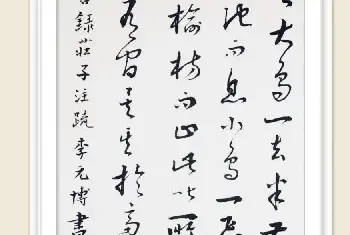 大鳥一去半
池而息小鳥一飛
榆枋而止此比所
有間矣其於適
錄莊子注疏 李元博書